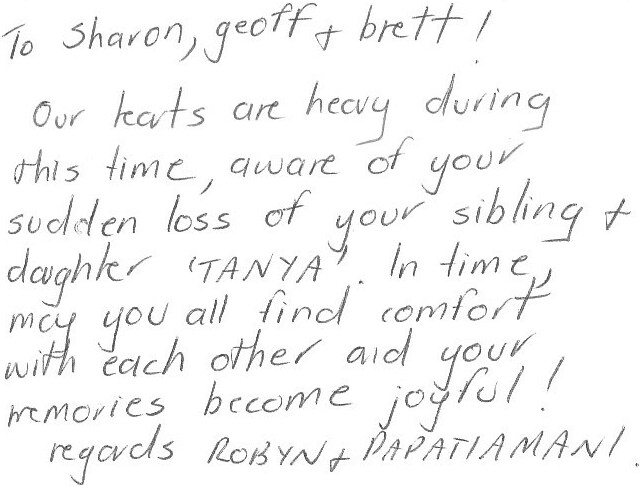 To Sharon, geoff + brett!
Our hearts are heavy during
this time, aware of your
sudden loss of your sibling +
daughter 'TANYA'. In time,
may you all find comfort
with each other and your
memories become joyful!
regards ROBYN + PAPATIAMANI.